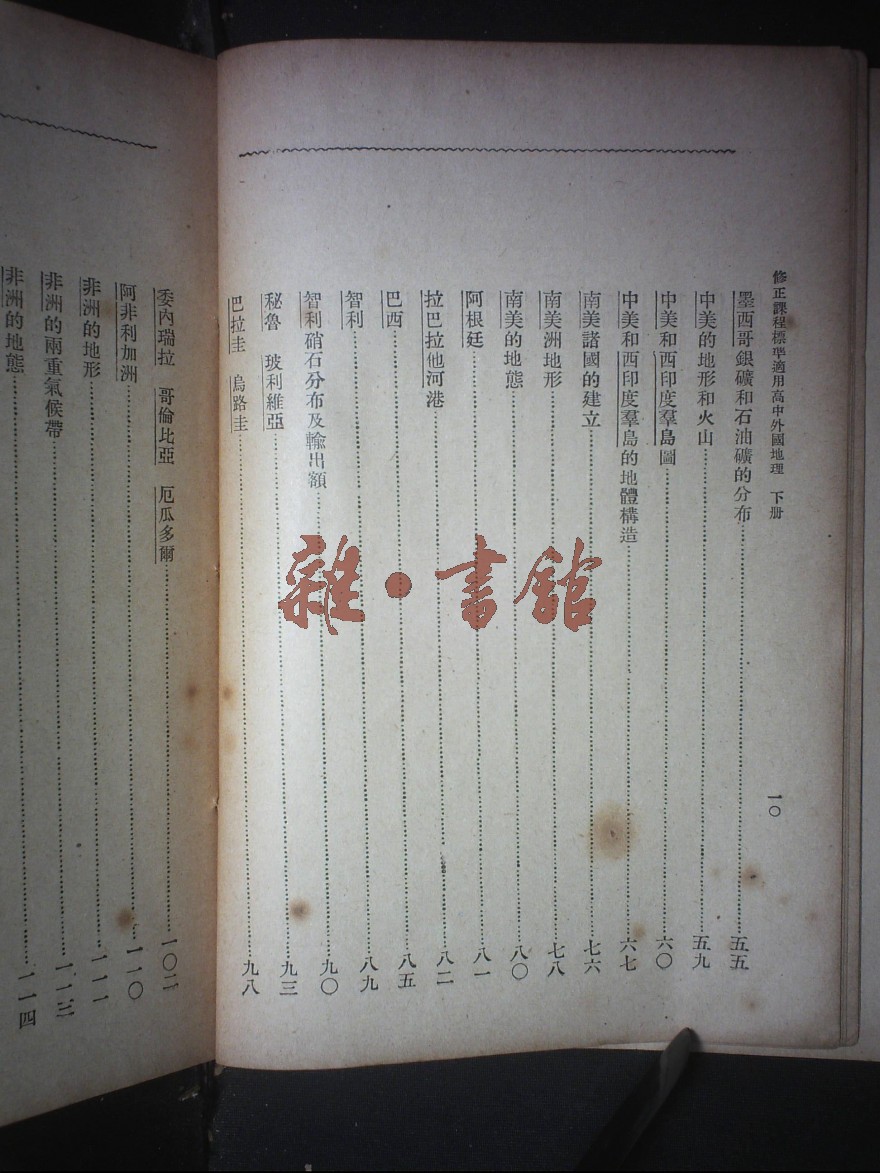 修正課程標準適用高中外國地理　下册
一〇
墨西哥銀礦和石油礦的分布…五五
中美的地形和火山…五九
中美和西印度羣島圖…六〇
中美和西印度羣島的地體構造…六七
南美諸國的建立…七六
南美洲地形…七八
南美的地態…八〇
阿根廷…八一
拉巴拉他河港…八二
巴西…八五
智利…八九
智利硝石分布及輸出額…九〇
秘魯　玻利維亞…九三
巴拉圭　烏路圭…九八
委內瑞拉　哥倫比亞　厄瓜多爾…一〇二
阿非利加洲…一一〇
非洲的地形…一一一
非洲的兩重氣候帶…一一三
非洲的地態…一一四
雜·書舘